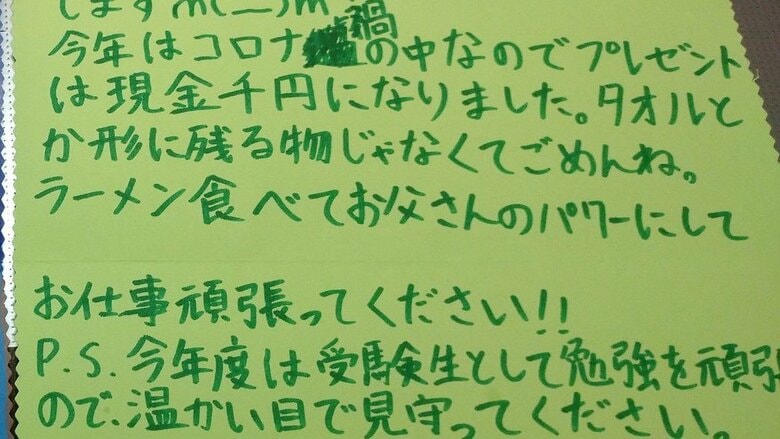 しますm(__)m
今年はコロナ禍の中なのでプレゼント
は現金千円になりました。タオルと
か形に残る物じゃなくてごめんね。
ラーメン食べてお父さんのパワーにして
お仕事頑張ってください!!
P.S.今年度は受験生として勉強を頑張
ので、温かい目で見守ってください。